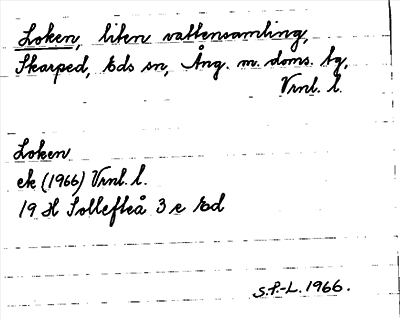 Loken, liten vattensamling,
Skarped, Eds sn, Ång. m. doms. tg,
Vrnl. l.
Loken
ek (1966) Vrnl. l.
19 H Sollefteå 3 e Ed
S.P.-L. 1966.